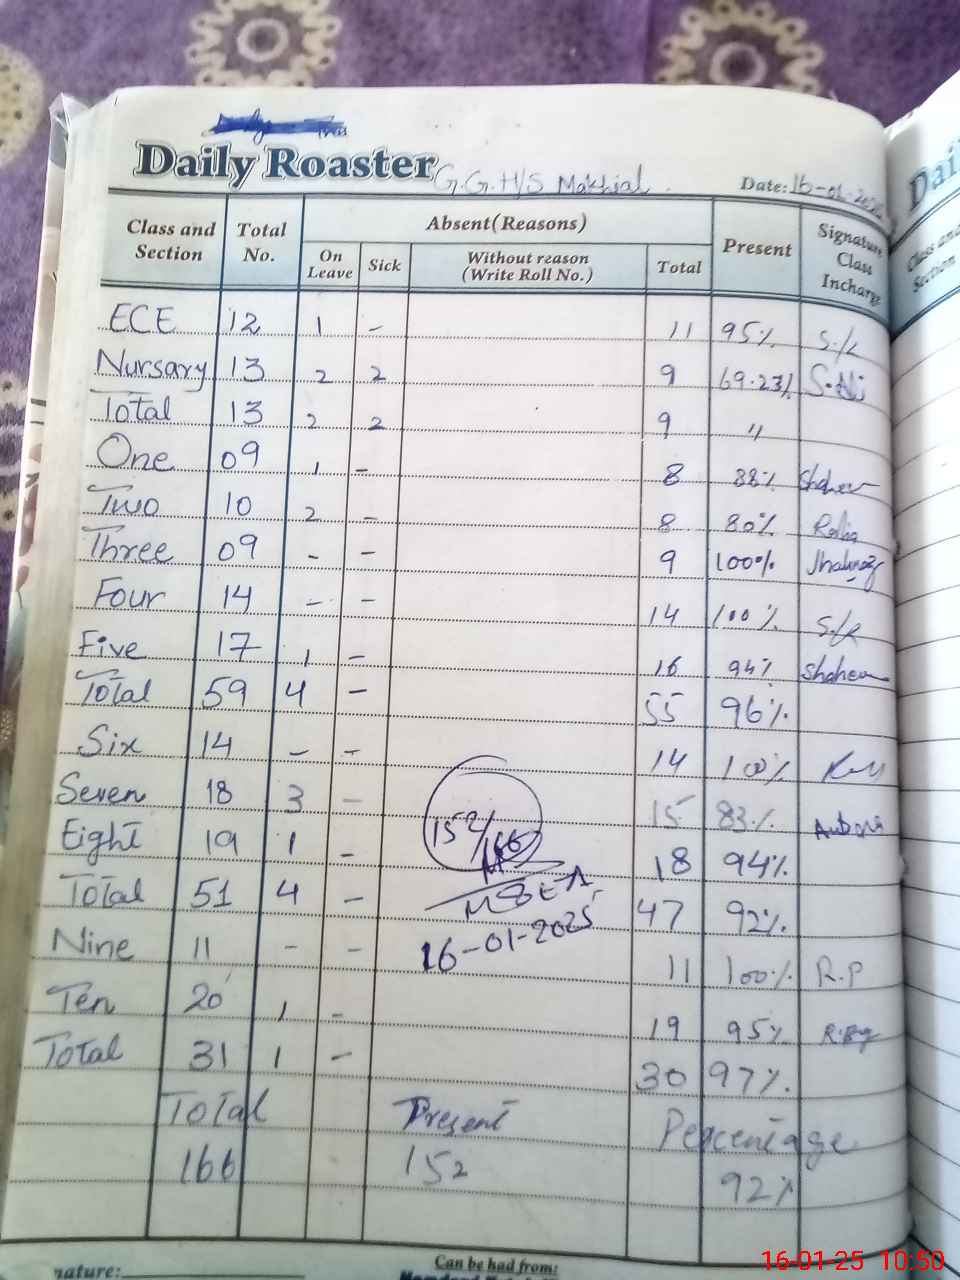 Daily Roaster G.G.H/S Makhial Date: 16-01-2025
Class and Section Total No. Absent(Reasons) Present Signature Class Incharge
On Leave Sick Without reason (Write Roll No.) Total
ECE 12 1 - 11 95% S./k
Nursary 13 2 2 9 69.23% S.Ali
Total 13 2 2 9 "
One 09 1 - 8 88% Shaheen
Two 10 2 - 8 80%
Three 09 - - 9 100%
Four 14 - - 14 100% S/k
Five 17 1 - 16 94% Shaheen
Total 59 4 - 55 96%
Six 14 - - 14 100%
Seven 18 3 - 15 83%
Eight 19 1 - 18 94%
Total 51 4 - 47 92%
152/166
16-01-2025
Nine 11 - - 11 100% R.P
Ten 20 1 - 19 95%
Total 31 1 - 30 97%
Total Present Percentage
166 152 92%
nature:
Can be had from:
16-01-25 10:50
Dail
Class and
Section